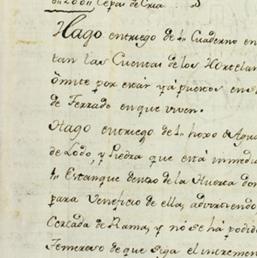 en 200[] Cepas de Cria
Hago entrego de 1n Cuaderno en
tan las Cuentas de los Hortelan
ómite por estár yá puestos en
de Ferrado en que viven.
Hago entrego de 1n hoxo de Agua
de Lodo, y Piedra que está inmedia
1n Estanque dentro de la Huerta don
para Veneficio de ella, advirtiendo
Cercada de Ramas, y nó se há podid
Femeraro de que siga el increment